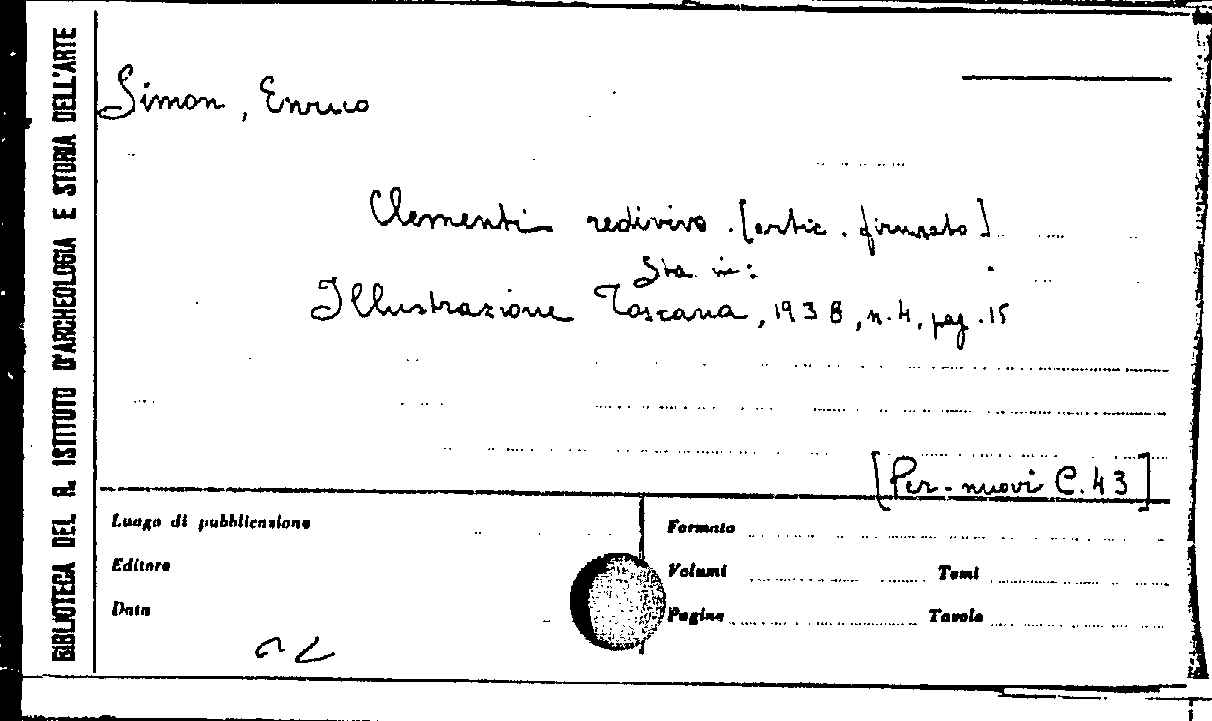 BIBLIOTECA DEL R. ISTITUTO D'ARCHEOLOGIA E STORIA DELL'ARTE
Simon, Enrico
Clementi redivivo. [artic. firmato]
Sta in:
Illustrazione Toscana, 1938, n. 4, pag. 15
[Per. nuovi C. 43]
Luogo di pubblicazione
Editore
Data
Formato
Volumi Tomi
Pagine Tavole